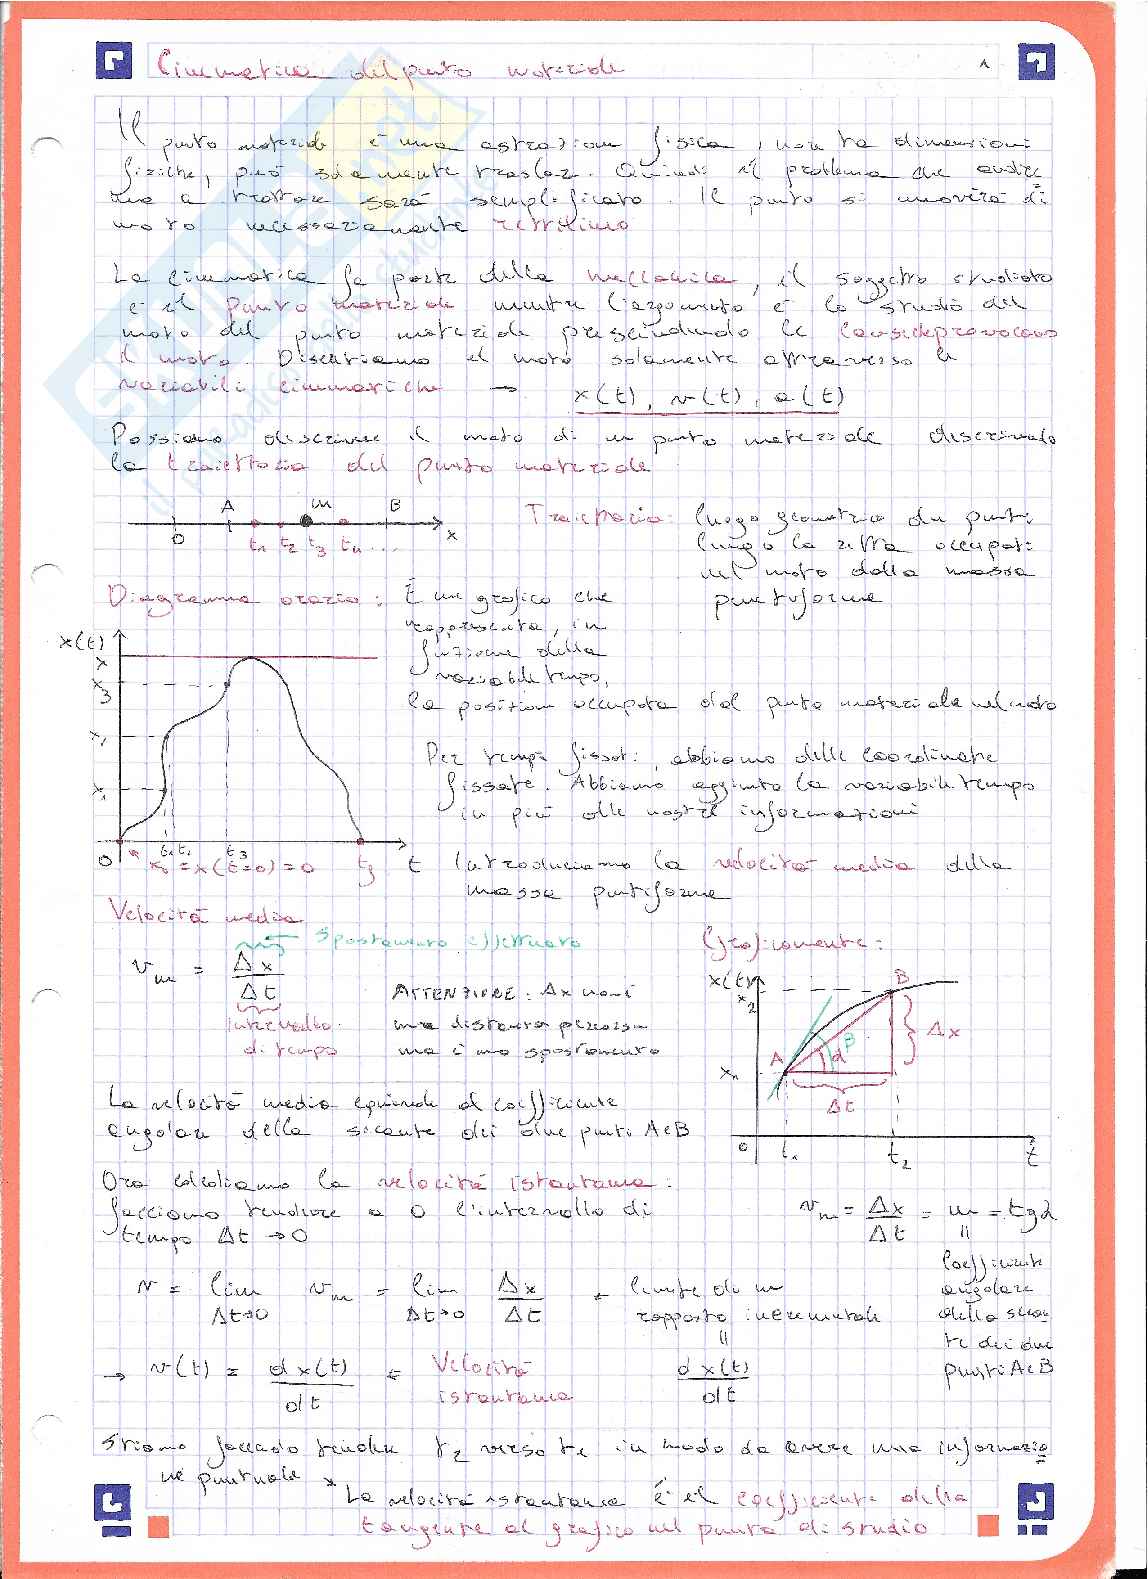 Cinematica del punto materiale
1
Il punto materiale è una astrazione fisica, non ha dimensioni
fisiche, può solamente traslare. Quindi il problema che andre
mo a trattare sarà semplificato. Il punto si muoverà di
moto necessariamente rettilineo
La cinematica fa parte della meccanica, il soggetto studiato
è il punto materiale mentre l'argomento è lo studio del
moto del punto materiale prescindendo le cause che provocano
il moto. Discutiamo il moto solamente attraverso le
variabili cinematiche → x(t), v(t), a(t)
Possiamo descrivere il moto di un punto materiale descrivendo
la traiettoria del punto materiale
A m B
0 t1 t2 t3 tn ... x
Traiettoria: luogo geometrico dei punti
lungo la retta occupati
nel moto dalla massa
puntiforme
Diagramma orario: È un grafico che
rappresenta, in
funzione della
variabile tempo,
la posizione occupata dal punto materiale nel moto
x(t)
x
x3
x2
x1
0 t1 t2 t3 t
x0 = x(t=0) = 0
Per tempi fissati, abbiamo delle coordinate
fissate. Abbiamo aggiunto la variabile tempo
in più alle nostre informazioni
Introduciamo la velocità media della
massa puntiforme
Velocità media
Spostamento effettuato
vm = Δx / Δt
Intervallo
di tempo
ATTENZIONE: Δx non è
una distanza percorsa
ma è uno spostamento
Graficamente:
x(t)
x2
B
Δx
A
α
β
x1
Δt
0 t1 t2 t
La velocità media equivale al coefficiente
angolare della secante dei due punti A e B
Ora calcoliamo la velocità istantanea:
facciamo tendere a 0 l'intervallo di
tempo Δt → 0
vm = Δx / Δt = m = tgα
"
Coefficiente
angolare
della secan
te dei due
punti A e B
v = lim Δt→0 vm = lim Δt→0 Δx / Δt = limite di un
rapporto incrementale
"
dx(t) / dt
→ v(t) = dx(t) / dt = Velocità
istantanea
Stiamo facendo tendere t2 verso t1 in modo da avere una informazio
ne puntuale
* La velocità istantanea è il coefficiente della
tangente al grafico nel punto di studio